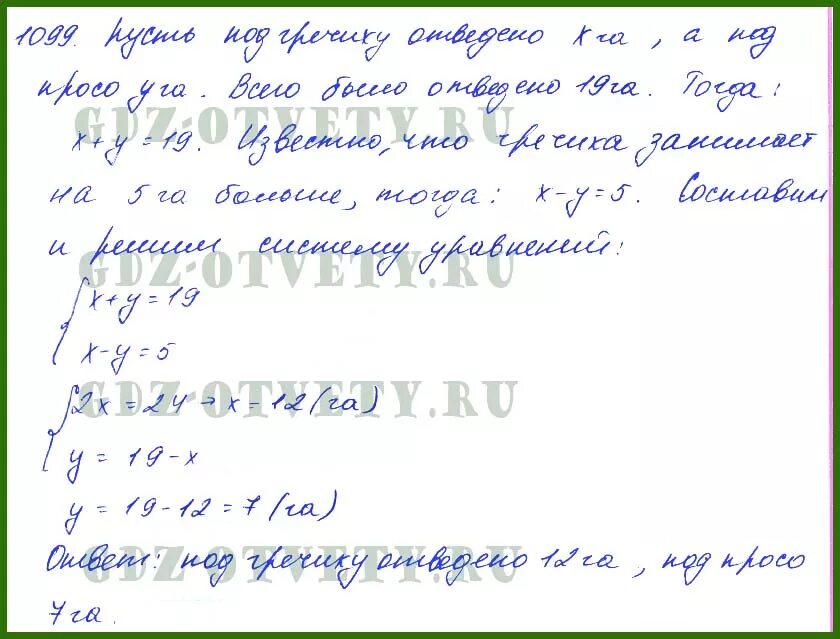 1099. Пусть под гречиху отведено x га, а под
просо y га. Всего было отведено 19 га. Тогда:
GDZ-OTVETY.RU
x+y=19. Известно, что гречиха занимает
на 5 га больше, тогда: x-y=5. Составим
и решим систему уравнений:
GDZ-OTVETY.RU
{ x+y=19
x-y=5
GDZ-OTVETY.RU
{ 2x=24 → x=12 (га)
y = 19-x
y = 19-12=7 (га)
Ответ: под гречиху отведено 12 га, под просо
GDZ-OTVETY.RU
7 га.